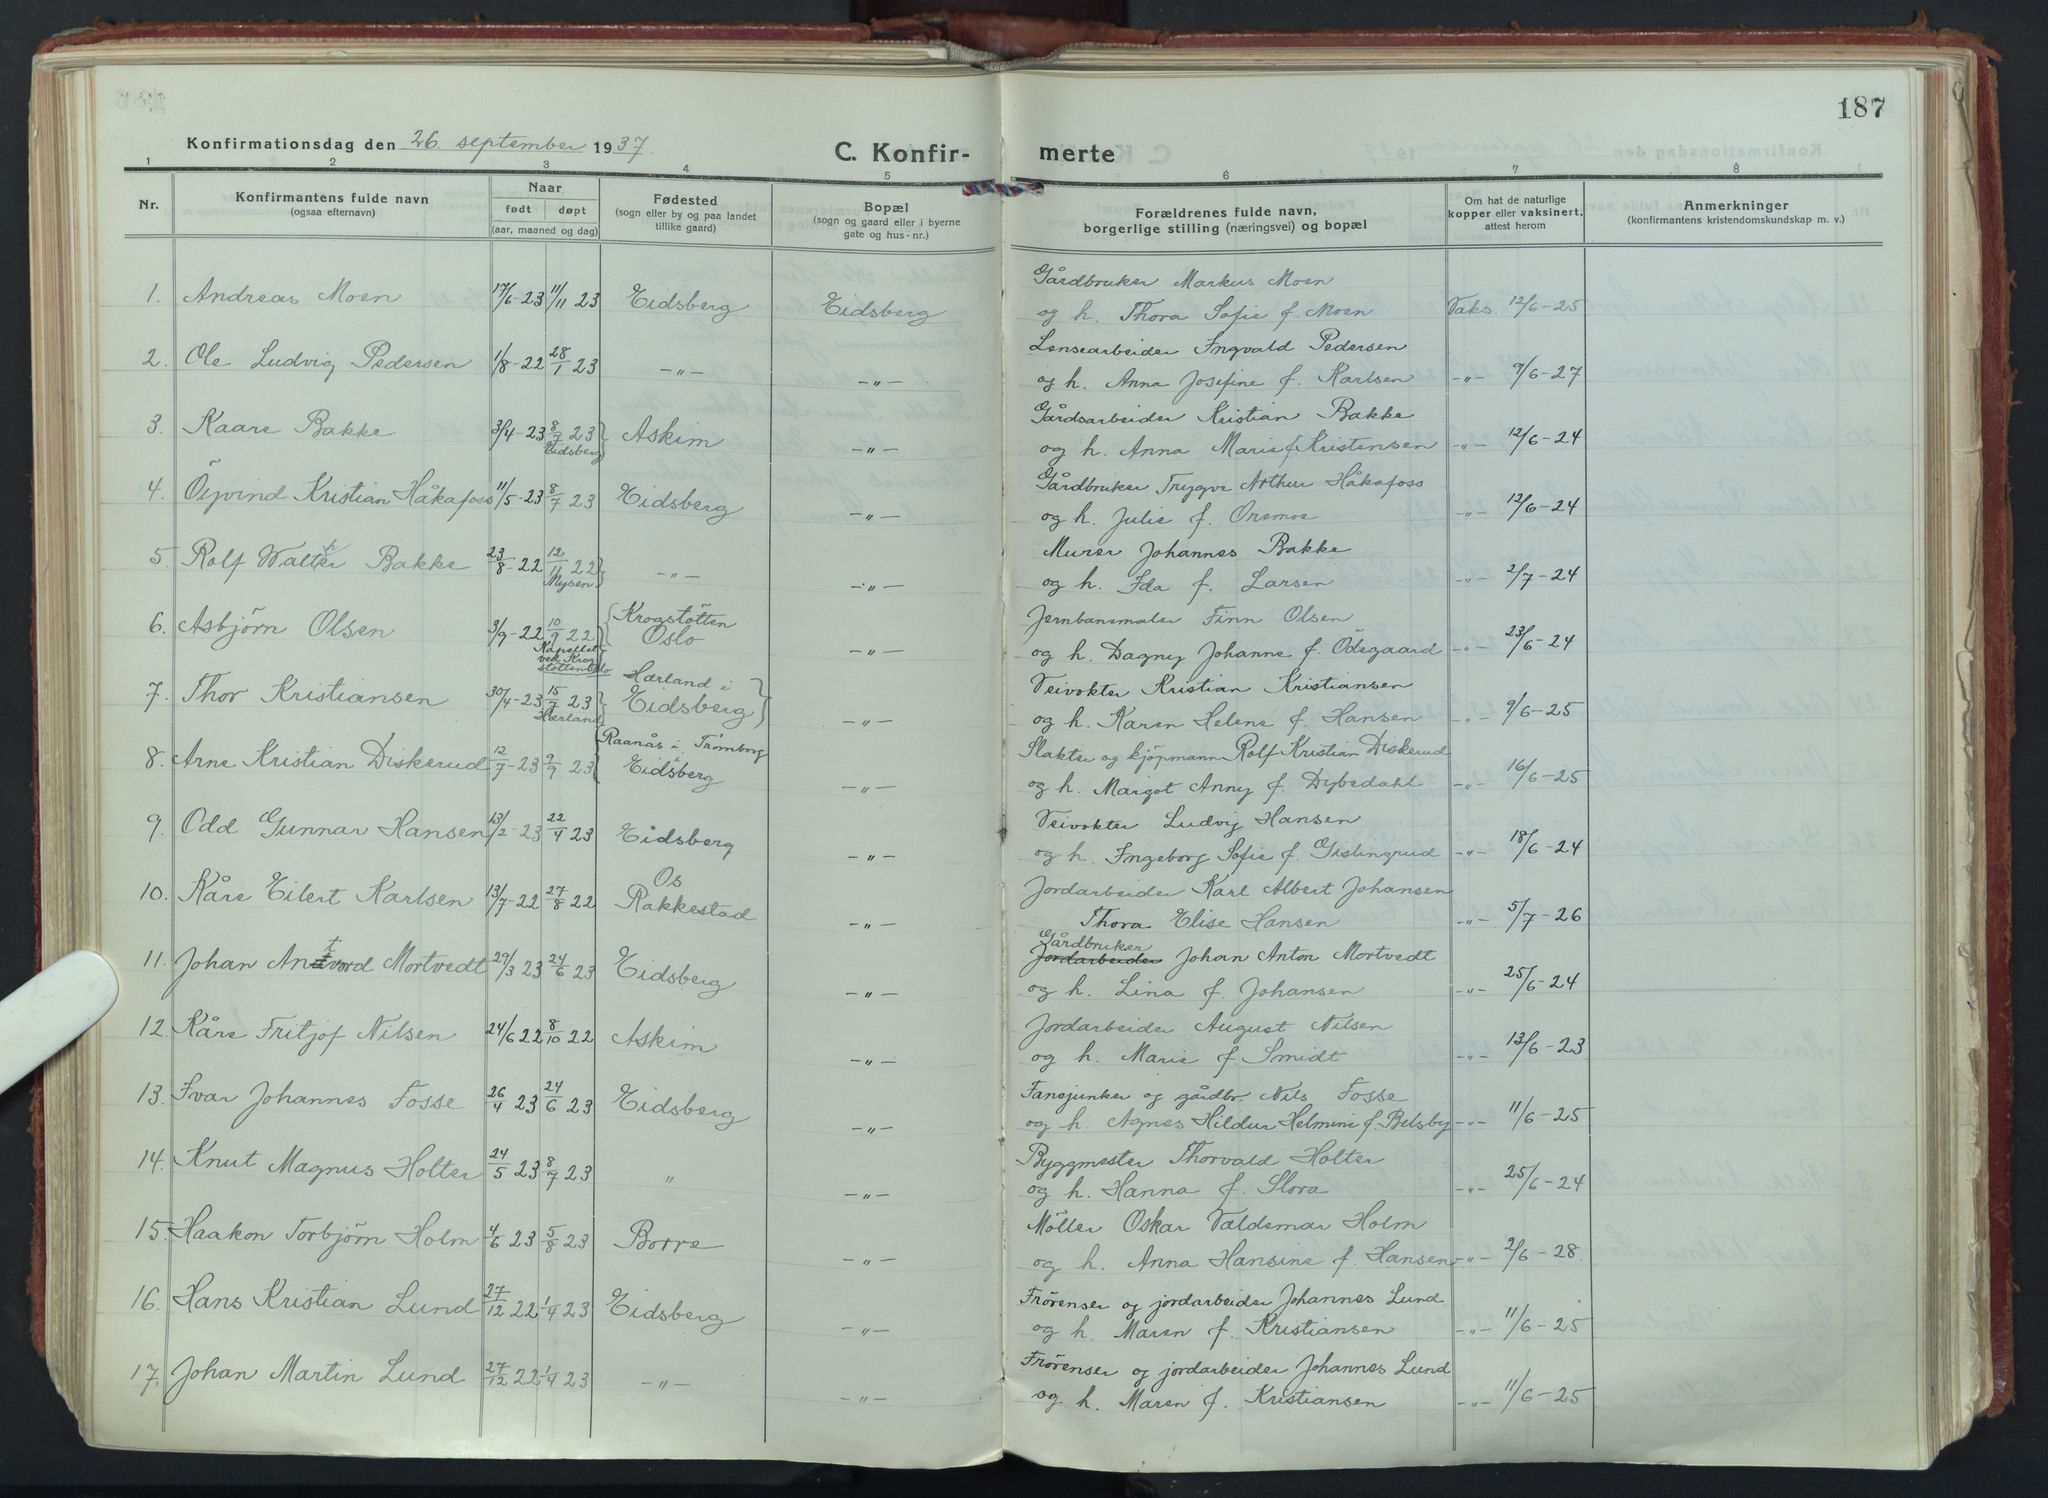 187
Konfirmationsdag den 26. september 1937.
C. Konfir-
merte
1 2 3 4 5 6 7 8
Nr.
Konfirmantens fulde navn
(ogsaa efternavn)
Naar
født døpt
(aar, maaned og dag)
Fødested
(sogn eller by og paa landet
tillike gaard)
Bopæl
(sogn og gaard eller i byerne
gate og hus-nr.)
Forældrenes fulde navn,
borgerlige stilling (næringsvei) og bopæl
Om hat de naturlige
kopper eller vaksinert,
attest herom
Anmerkninger
(konfirmantens kristendomskundskap m. v.)
1. Andreas Moen 17/6-23 11/11 23 Eidsberg Eidsberg Gårdbruker Markus Moen
og h. Thora Sofie f. Moen Vaks. 12/6-25
2. Ole Ludvig Pedersen 1/8-22 28/1 23 -„- -„- Lensearbeider Ingvald Pedersen
og h. Anna Josefine f. Karlsen -„- 9/6-27
3. Kaare Bakke 3/4-23 8/7 23 Eidsberg } Askim -„- Gårdsarbeider Kristian Bakke
og h. Anna Marie f. Kristensen -„- 12/6-24
4. Öyvind Kristian Håkafoss 11/5-23 8/7 23 Eidsberg -„- Gårdbruker Trygve Arthur Håkafoss
og h. Julie f. Onsmoe -„- 12/6-24
5. Rolf Walther Bakke 23/8-22 12/11 22 Mysen } -„- -„- Murer Johannes Bakke
og h. Ida f. Larsen -„- 2/7-24
6. Asbjörn Olsen 3/9-22 10/9 22 Kapellet ved Krogstøtten Oslo { Krogstötten
Oslo -„- Jernbanemaler Finn Olsen
og h. Dagny Johanne f. Ödegaard -„- 23/6-24
7. Thor Kristiansen 30/4-23 15/7 23 Hærland { Hærland i
Eidsberg } -„- Veivokter Kristian Kristiansen
og h. Karen Helene f. Hansen -„- 9/6-25
8. Arne Kristian Diskerud 12/7-23 9/9 23 { Raanås i Trømborg
i Eidsberg -„- Slakter og kjöpmann Rolf Kristian Diskerud
og h. Margot Anny f. Dybedahl -„- 16/6-25
9. Odd Gunnar Hansen 13/2-23 22/4 23 Eidsberg -„- Veivokter Ludvig Hansen
og h. Ingeborg Sofie f. Gislingrud -„- 18/6-24
10. Kåre Eilert Karlsen 13/7-22 27/8 22 Os
Rakkestad -„- Jordarbeider Karl Albert Johansen
Thora Elise Hansen -„- 5/7-26
11. Johan Mortvedt 29/3 23 24/6 23 Eidsberg -„- Gårdbruker
Jordarbeider Johan Anton Mortvedt
og h. Lina f. Johansen -„- 25/6-24
12. Kåre Fritjof Nilsen 24/6 22 8/10 22 Askim -„- Jordarbeider August Nilsen
og h. Marie f. Smidt -„- 13/6-23
13. Ivar Johannes Fosse 26/4 23 24/6 23 Eidsberg -„- Fanejunker og gårdbr. Nils Fosse
og h. Agnes Hildur Helmine f. Belsby -„- 11/6-25
14. Knut Magnus Holter 24/5 23 8/7 23 „ -„- Byggmester Thorvald Holter
og h. Hanna f. Slora -„- 25/6-24
15. Haakon Torbjörn Holm 4/6 23 5/8 23 Borre -„- Möller Oskar Valdemar Holm
og h. Anna Hansine f. Hansen -„- 2/6-28.
16. Hans Kristian Lund 27/12 22 1/4 23 Eidsberg -„- Frörenser og jordarbeider Johannes Lund
og h. Maren f. Kristiansen -„- 11/6-25
17. Johan Martin Lund 27/12 22 1/4 23 -„- -„- Frörenser og jordarbeider Johannes Lund
og h. Maren f. Kristiansen -„- 11/6-25